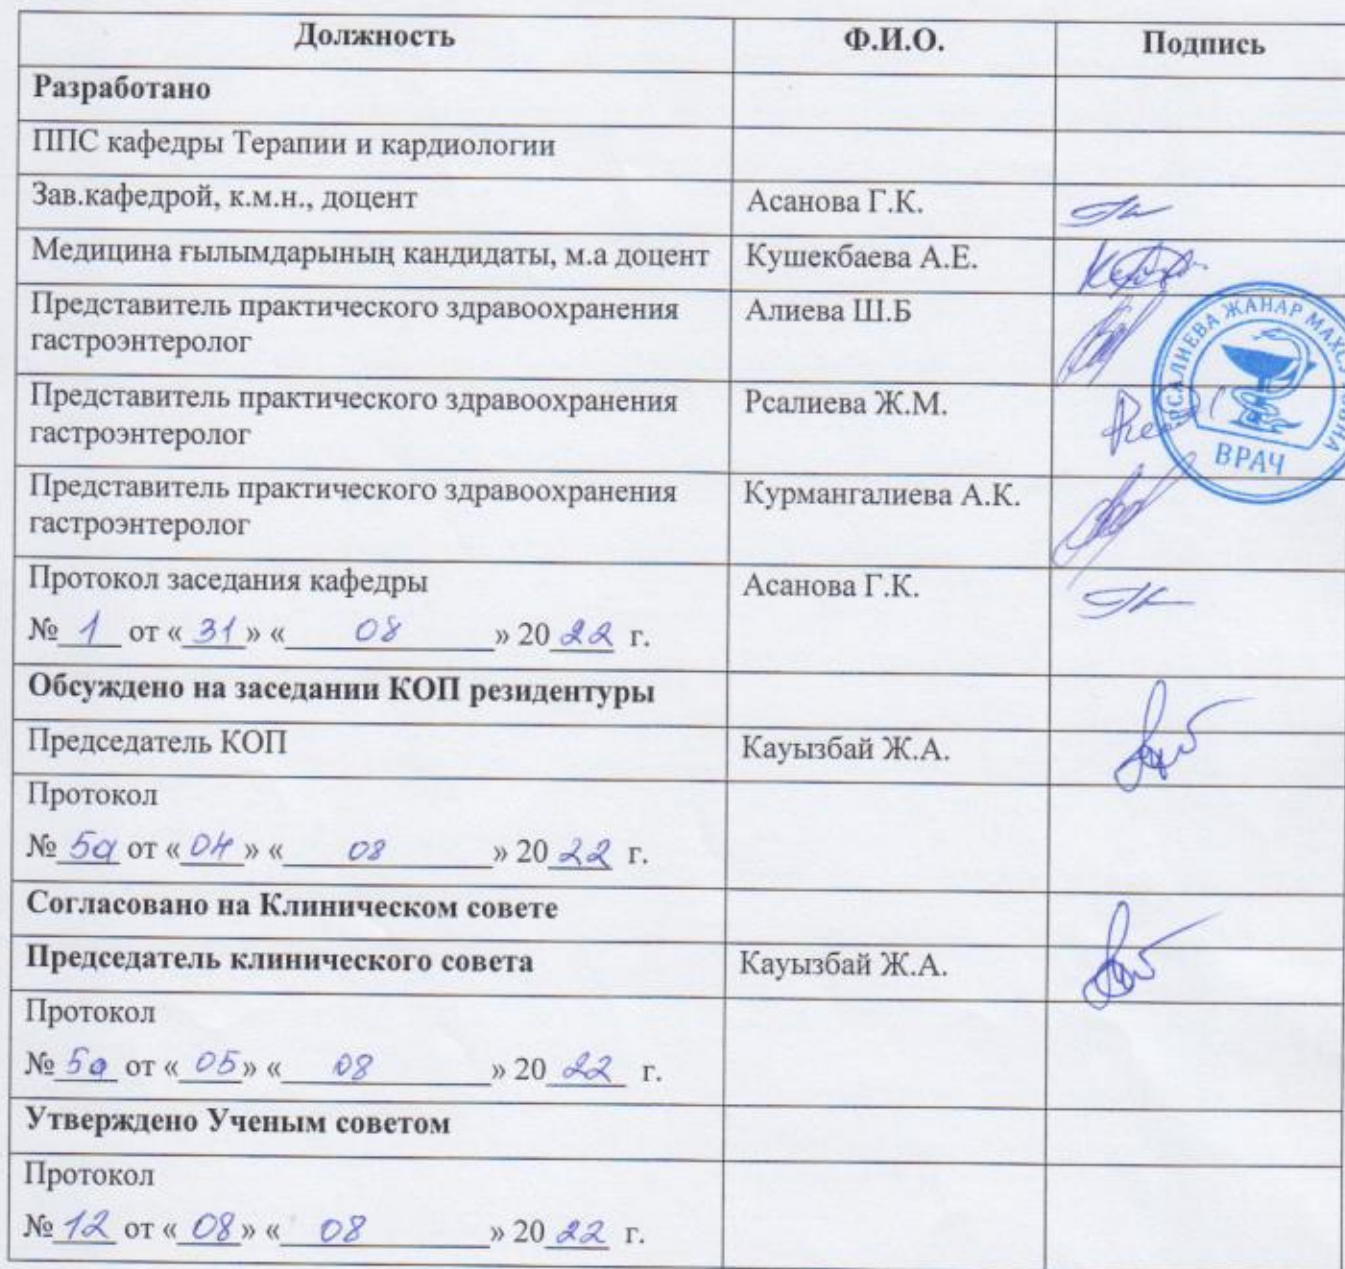 Должность Ф.И.О. Подпись
Разработано
ППС кафедры Терапии и кардиологии
Зав.кафедрой, к.м.н., доцент Асанова Г.К.
Медицина ғылымдарының кандидаты, м.а доцент Кушекбаева А.Е.
Представитель практического здравоохранения Алиева Ш.Б
гастроэнтеролог
Представитель практического здравоохранения Рсалиева Ж.М.
гастроэнтеролог
РСАЛИЕВА ЖАНАР
ВРАЧ
Представитель практического здравоохранения Курмангалиева А.К.
гастроэнтеролог
Протокол заседания кафедры Асанова Г.К.
№ 1 от « 31 » « 08 » 20 22 г.
Обсуждено на заседании КОП резидентуры
Председатель КОП Кауызбай Ж.А.
Протокол
№ 5а от « 04 » « 08 » 20 22 г.
Согласовано на Клиническом совете
Председатель клинического совета Кауызбай Ж.А.
Протокол
№ 5а от « 05 » « 08 » 20 22 г.
Утверждено Ученым советом
Протокол
№ 12 от « 08 » « 08 » 20 22 г.